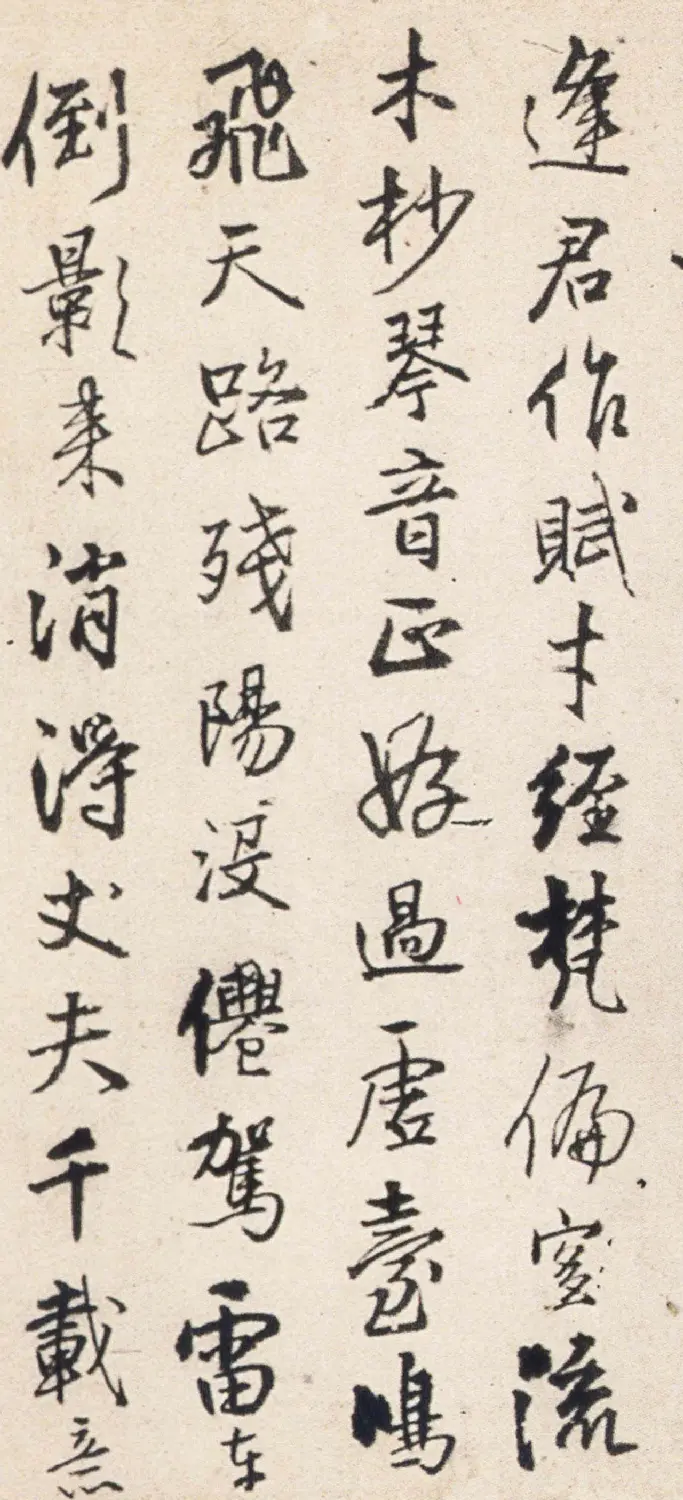 逢君作賦才經梵偏宜流
木杪琴音正好過虛臺鳴
飛天路殘陽沒僊駕雷車
倒影来消得丈夫千載意